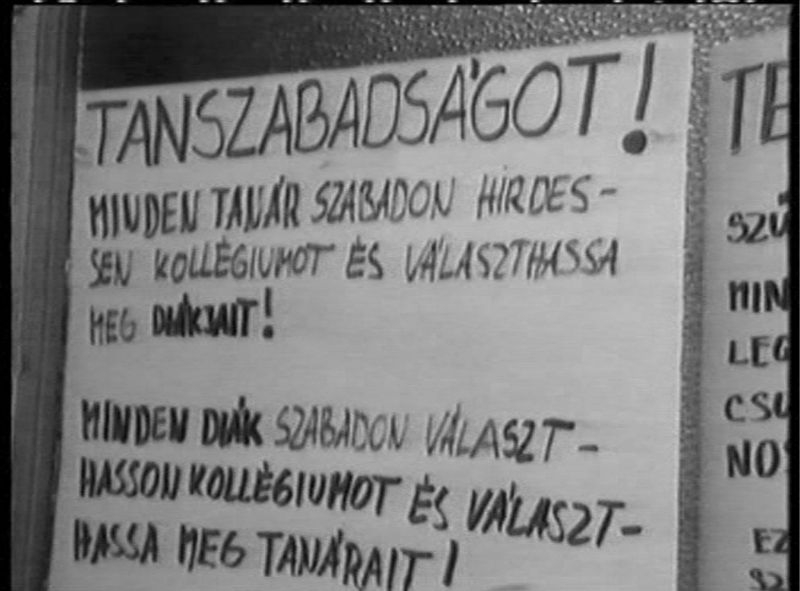 TANSZABADSÁGOT!
MINDEN TANÁR SZABADON HIRDES-
SEN KOLLÉGIUMOT ÉS VÁLASZTHASSA
MEG DIÁKJAIT!
MINDEN DIÁK SZABADON VÁLASZT-
HASSON KOLLÉGIUMOT ÉS VÁLASZT-
HASSA MEG TANÁRAIT!
TE
SZÜ
MIN
LEG
CSU
NO
EZ
SZ